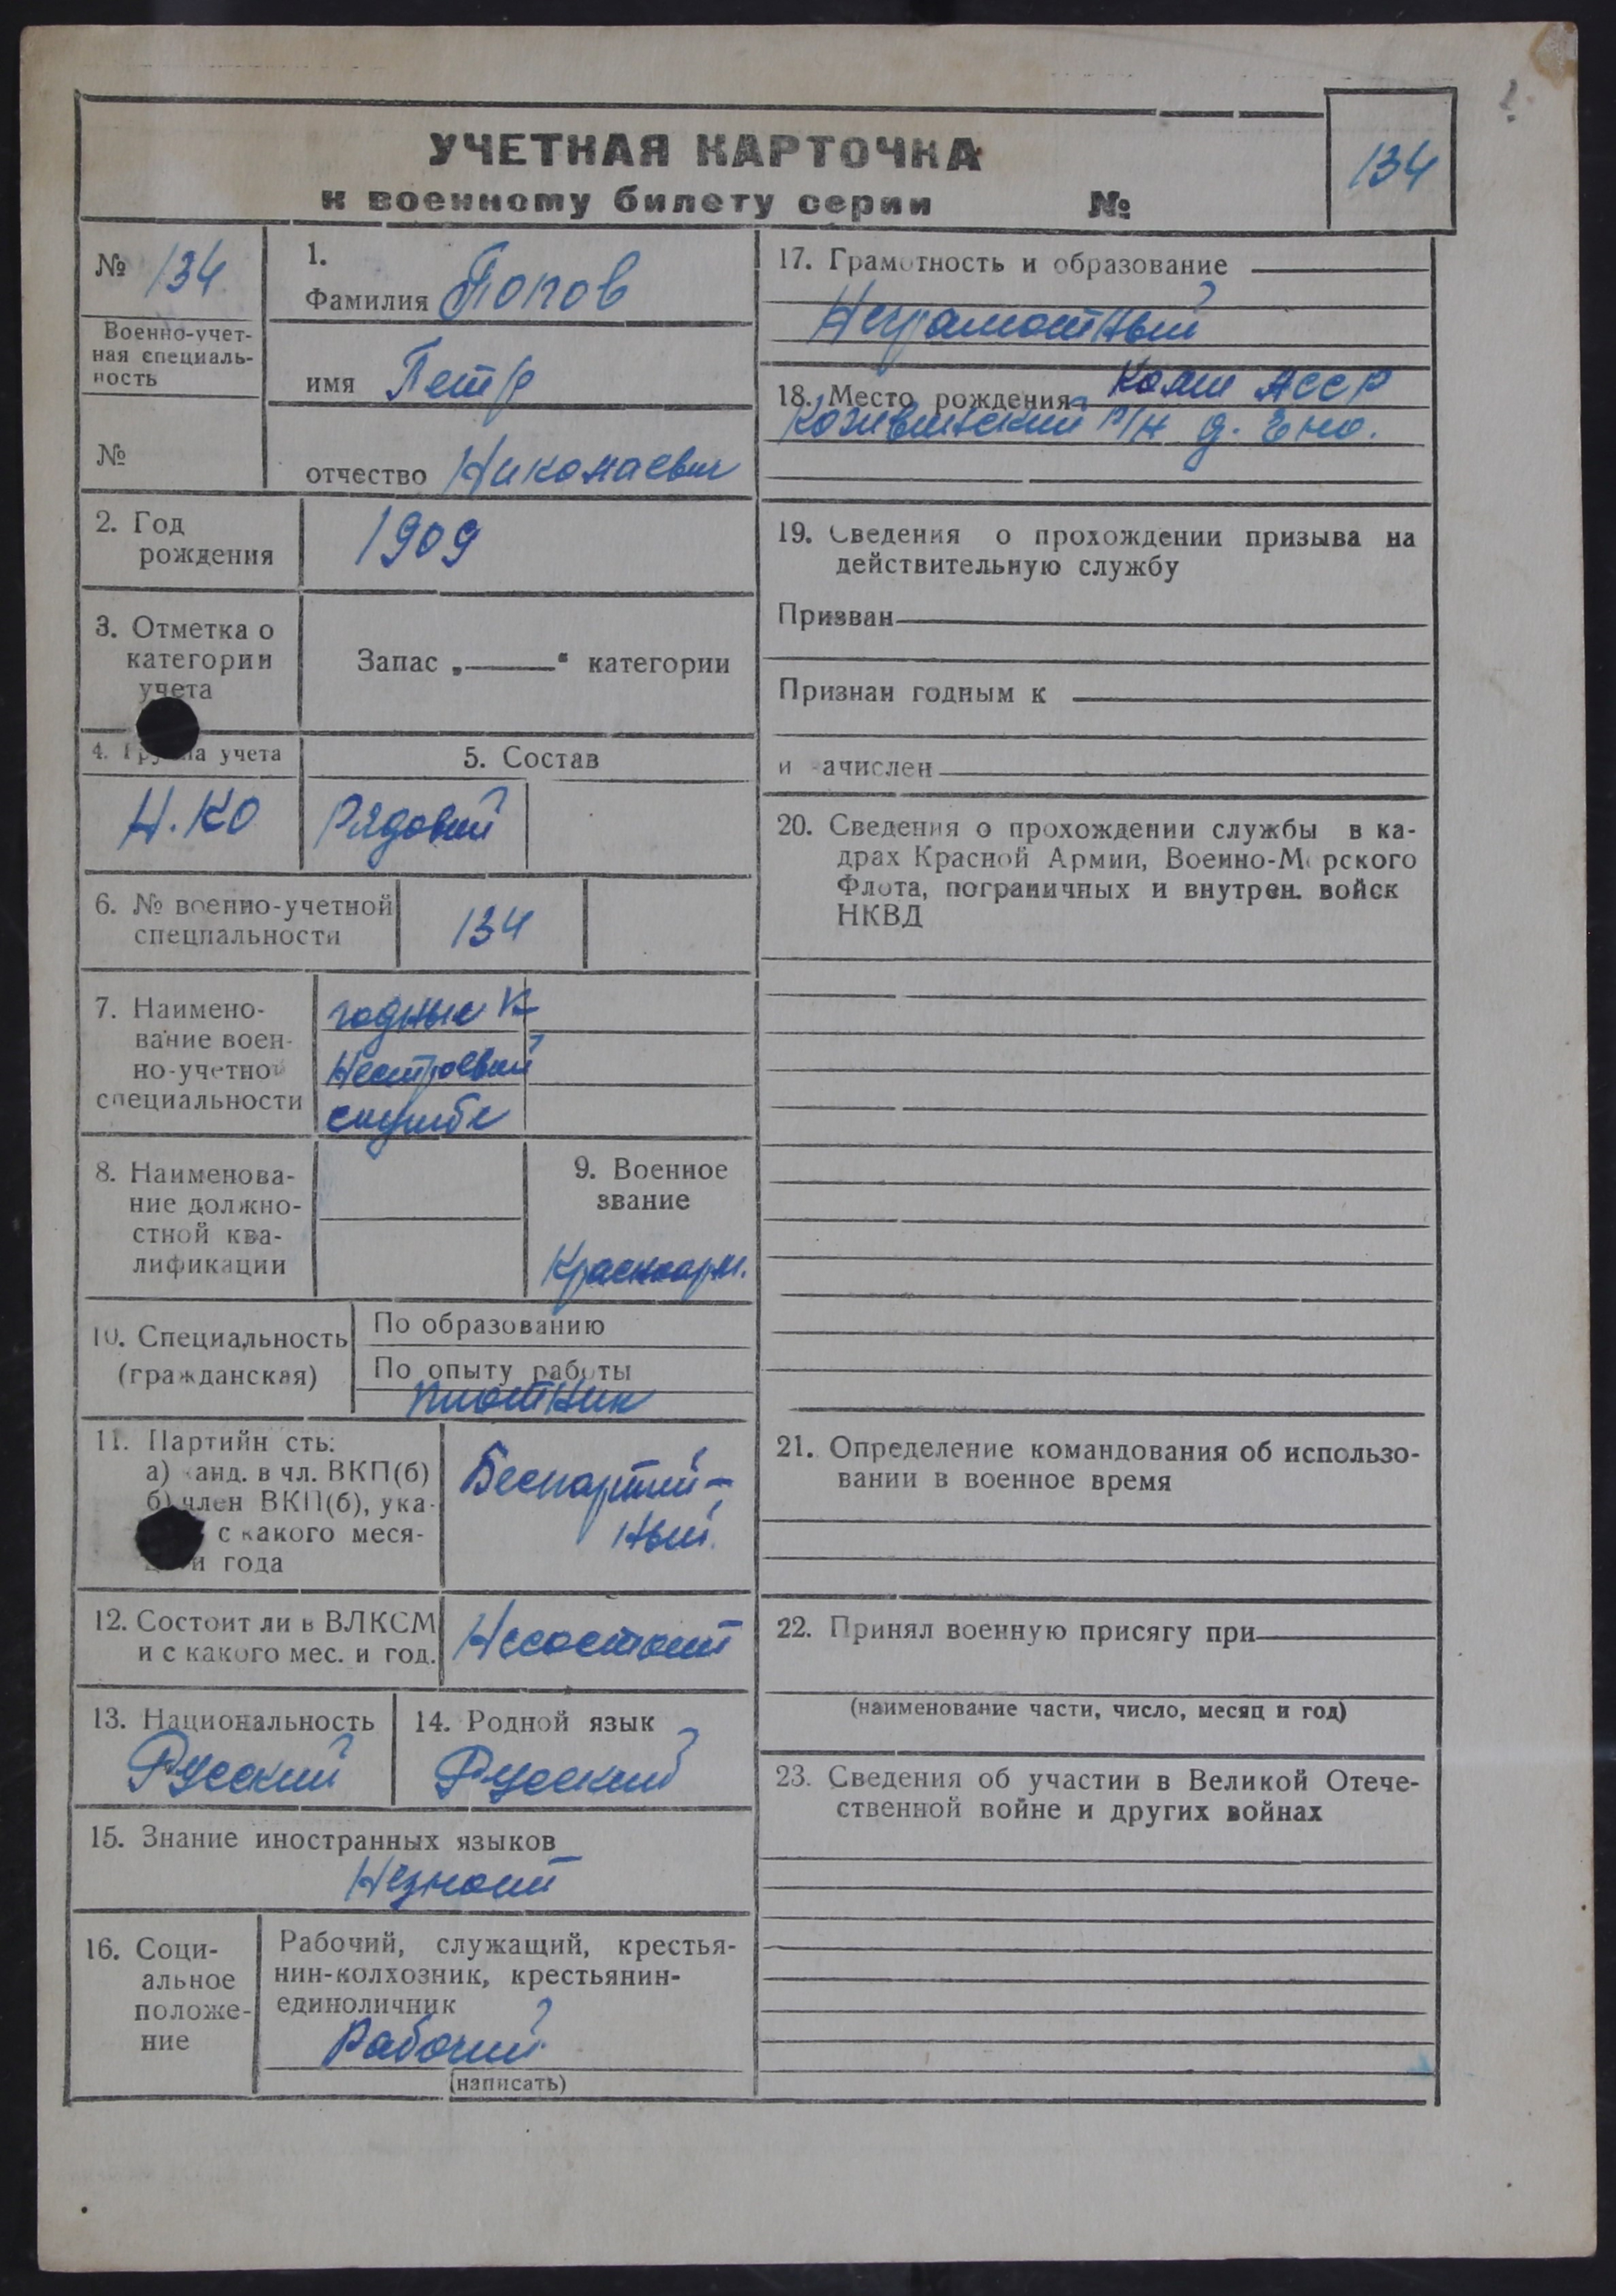 УЧЕТНАЯ КАРТОЧКА
к военному билету серии №
134
№ 134
Военно-учет-
ная специаль-
ность
№
1.
Фамилия Попов
имя Петр
отчество Николаевич
2. Год
рождения
1909
3. Отметка о
категории
учета
Запас „—“ категории
4. Гру па учета
Н.КО
5. Состав
Рядовий
6. № военно-учетной
специальности
134
7. Наимено-
вание воен-
но-учетной
специальности
годные к
Нестроевой
службе
8. Наименова-
ние должно-
стной ква-
лификации
9. Военное
звание
Красноарм.
10. Специальность
(гражданская)
По образованию
По опыту работы
плотник
11. Партийн сть:
а) канд. в чл. ВКП(б)
б) член ВКП(б), ука-
с какого меся-
и года
Беспартий-
ный.
12. Состоит ли в ВЛКСМ
и с какого мес. и год.
Несостоит
13. Национальность
Русский
14. Родной язык
Русский
15. Знание иностранных языков
Незноит
16. Соци-
альное
положе-
ние
Рабочий, служащий, крестья-
нин-колхозник, крестьянин-
единоличник
Рабочий
(написать)
17. Грамотность и образование
Неграмотный
18. Место рождения Коми АССР
Кожвинский р/н д.
19. Сведения о прохождении призыва на
действительную службу
Призван
Признан годным к
и зачислен
20. Сведения о прохождении службы в ка-
драх Красной Армии, Военно-Морского
Флота, пограничных и внутрен. войск
НКВД
21. Определение командования об использо-
вании в военное время
22. Принял военную присягу при
(наименование части, число, месяц и год)
23. Сведения об участии в Великой Отече-
ственной войне и других войнах